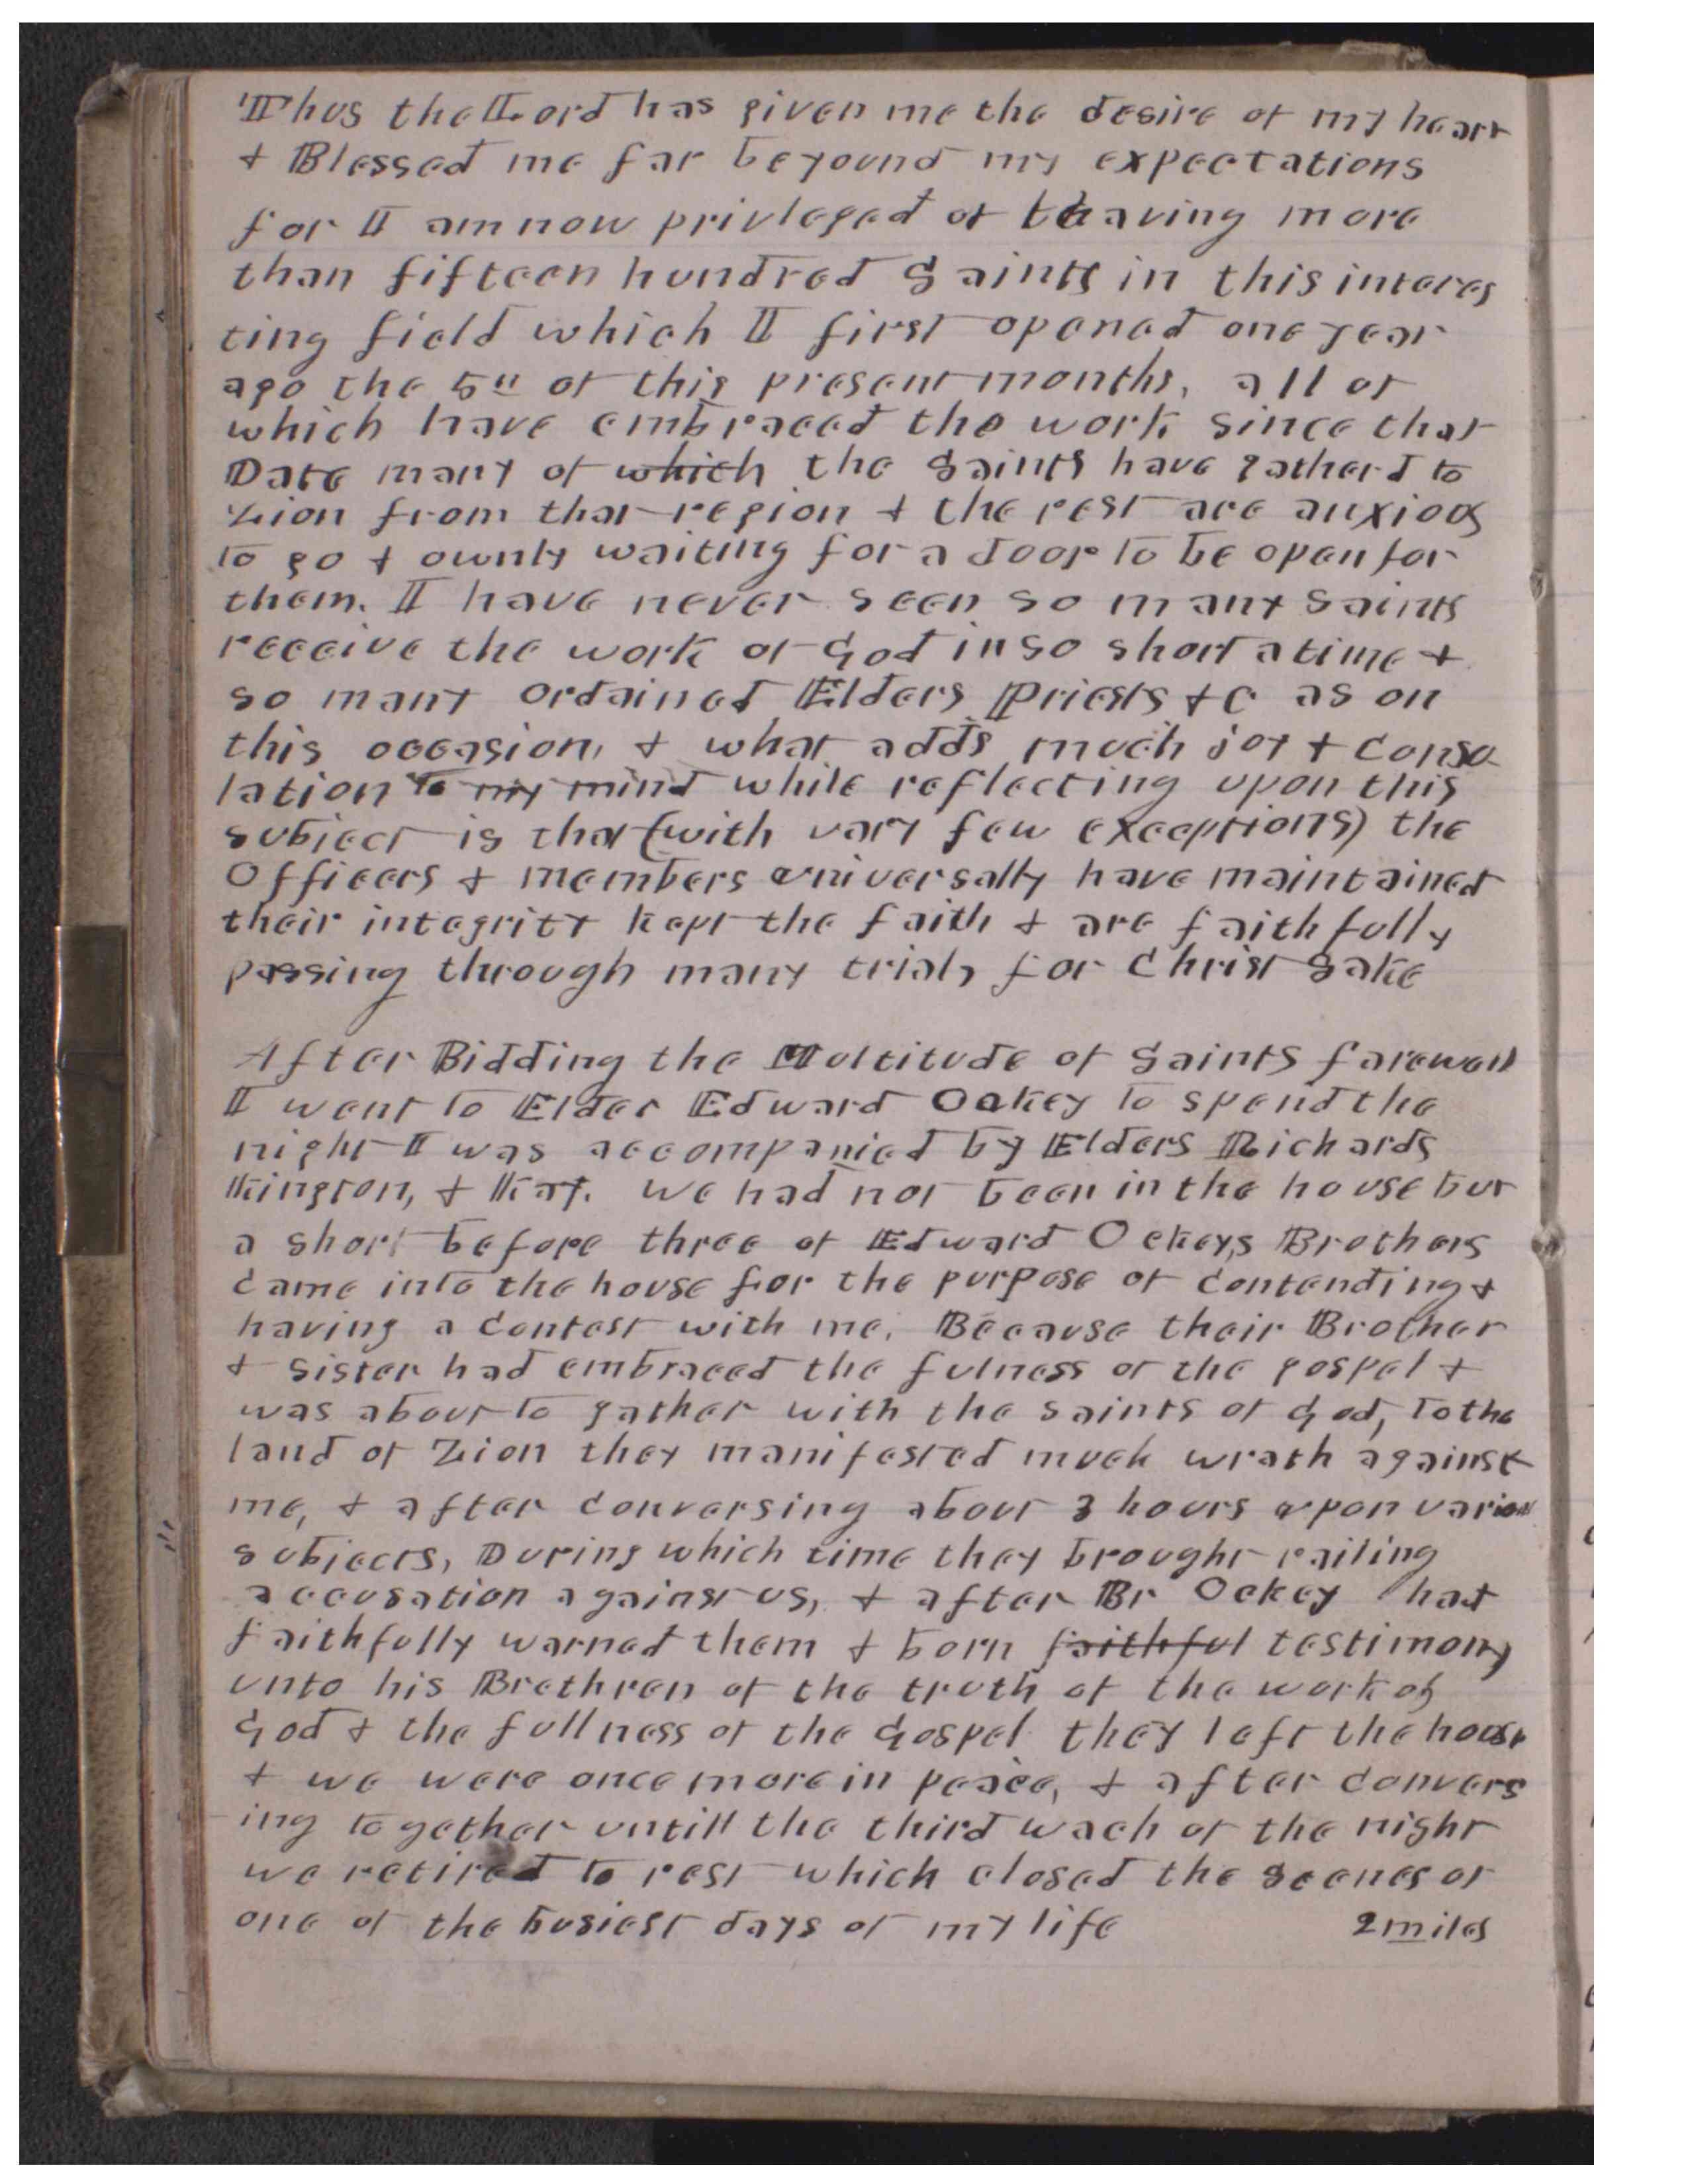 Thus the Lord has given me the desire of my heart
& Blessed me far beyound my expectations
for I am now privleged of leaving more
than fifteen hundred Saints in this interes
ting field which I first opened one year
ago the 5th of this present months, all of
which have embraced the work since that
Date many of which the Saints have gatherd to
Zion from that region & the rest are anxious
to go & ownly waiting for a door to be open for
them. I have never seen so many saints
receive the work of God in so short a time &
so many ordained Elders Priests &c as on
this occasion, & what adds much joy & conso
lation to my mind while reflecting upon this
subject is that (with vary few exceptions) the
Officers & members universally have maintained
their integrity kept the faith & are faithfully
passing through many trials for Christ sake
After Bidding the Multitude of Saints farewell
I went to Elder Edward Oakey to spend the
night I was accompanied by Elders Richards
Kington, & Kay. we had not been in the house but
a short before three of Edward Ockeys Brothers
came into the house for the purpose of contending &
having a contest with me. Because their Brother
& sister had embraced the fulness of the gospel &
was about to gather with the saints of God, to the
land of Zion they manifested much wrath against
me, & after conversing about 3 hours upon various
subjects, During which time they brought railing
accusation against us, & after Br Ockey had
faithfully warned them & born faithful testimony
unto his Brethren of the truth of the work of
God & the fullness of the Gospel they left the house
& we were once more in peace, & after convers
ing together untill the third wach of the night
we retired to rest which closed the scenes of
one of the busiest days of my life 2 miles